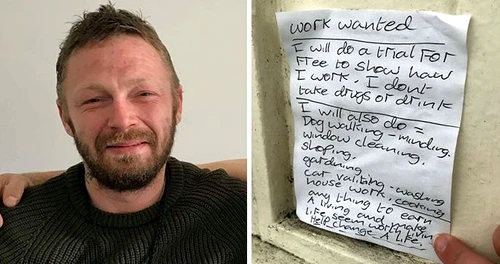 work wanted
I will do a trial FOR
Free to show how
I work. I dont
take drugs or drink
I will also do =
Dog walking - minding.
window cleaning.
shoping.
gardning.
car valiting - washing
house work, cooking
any thing to earn
A living and make
Life seem worth livin
Help change A Life.